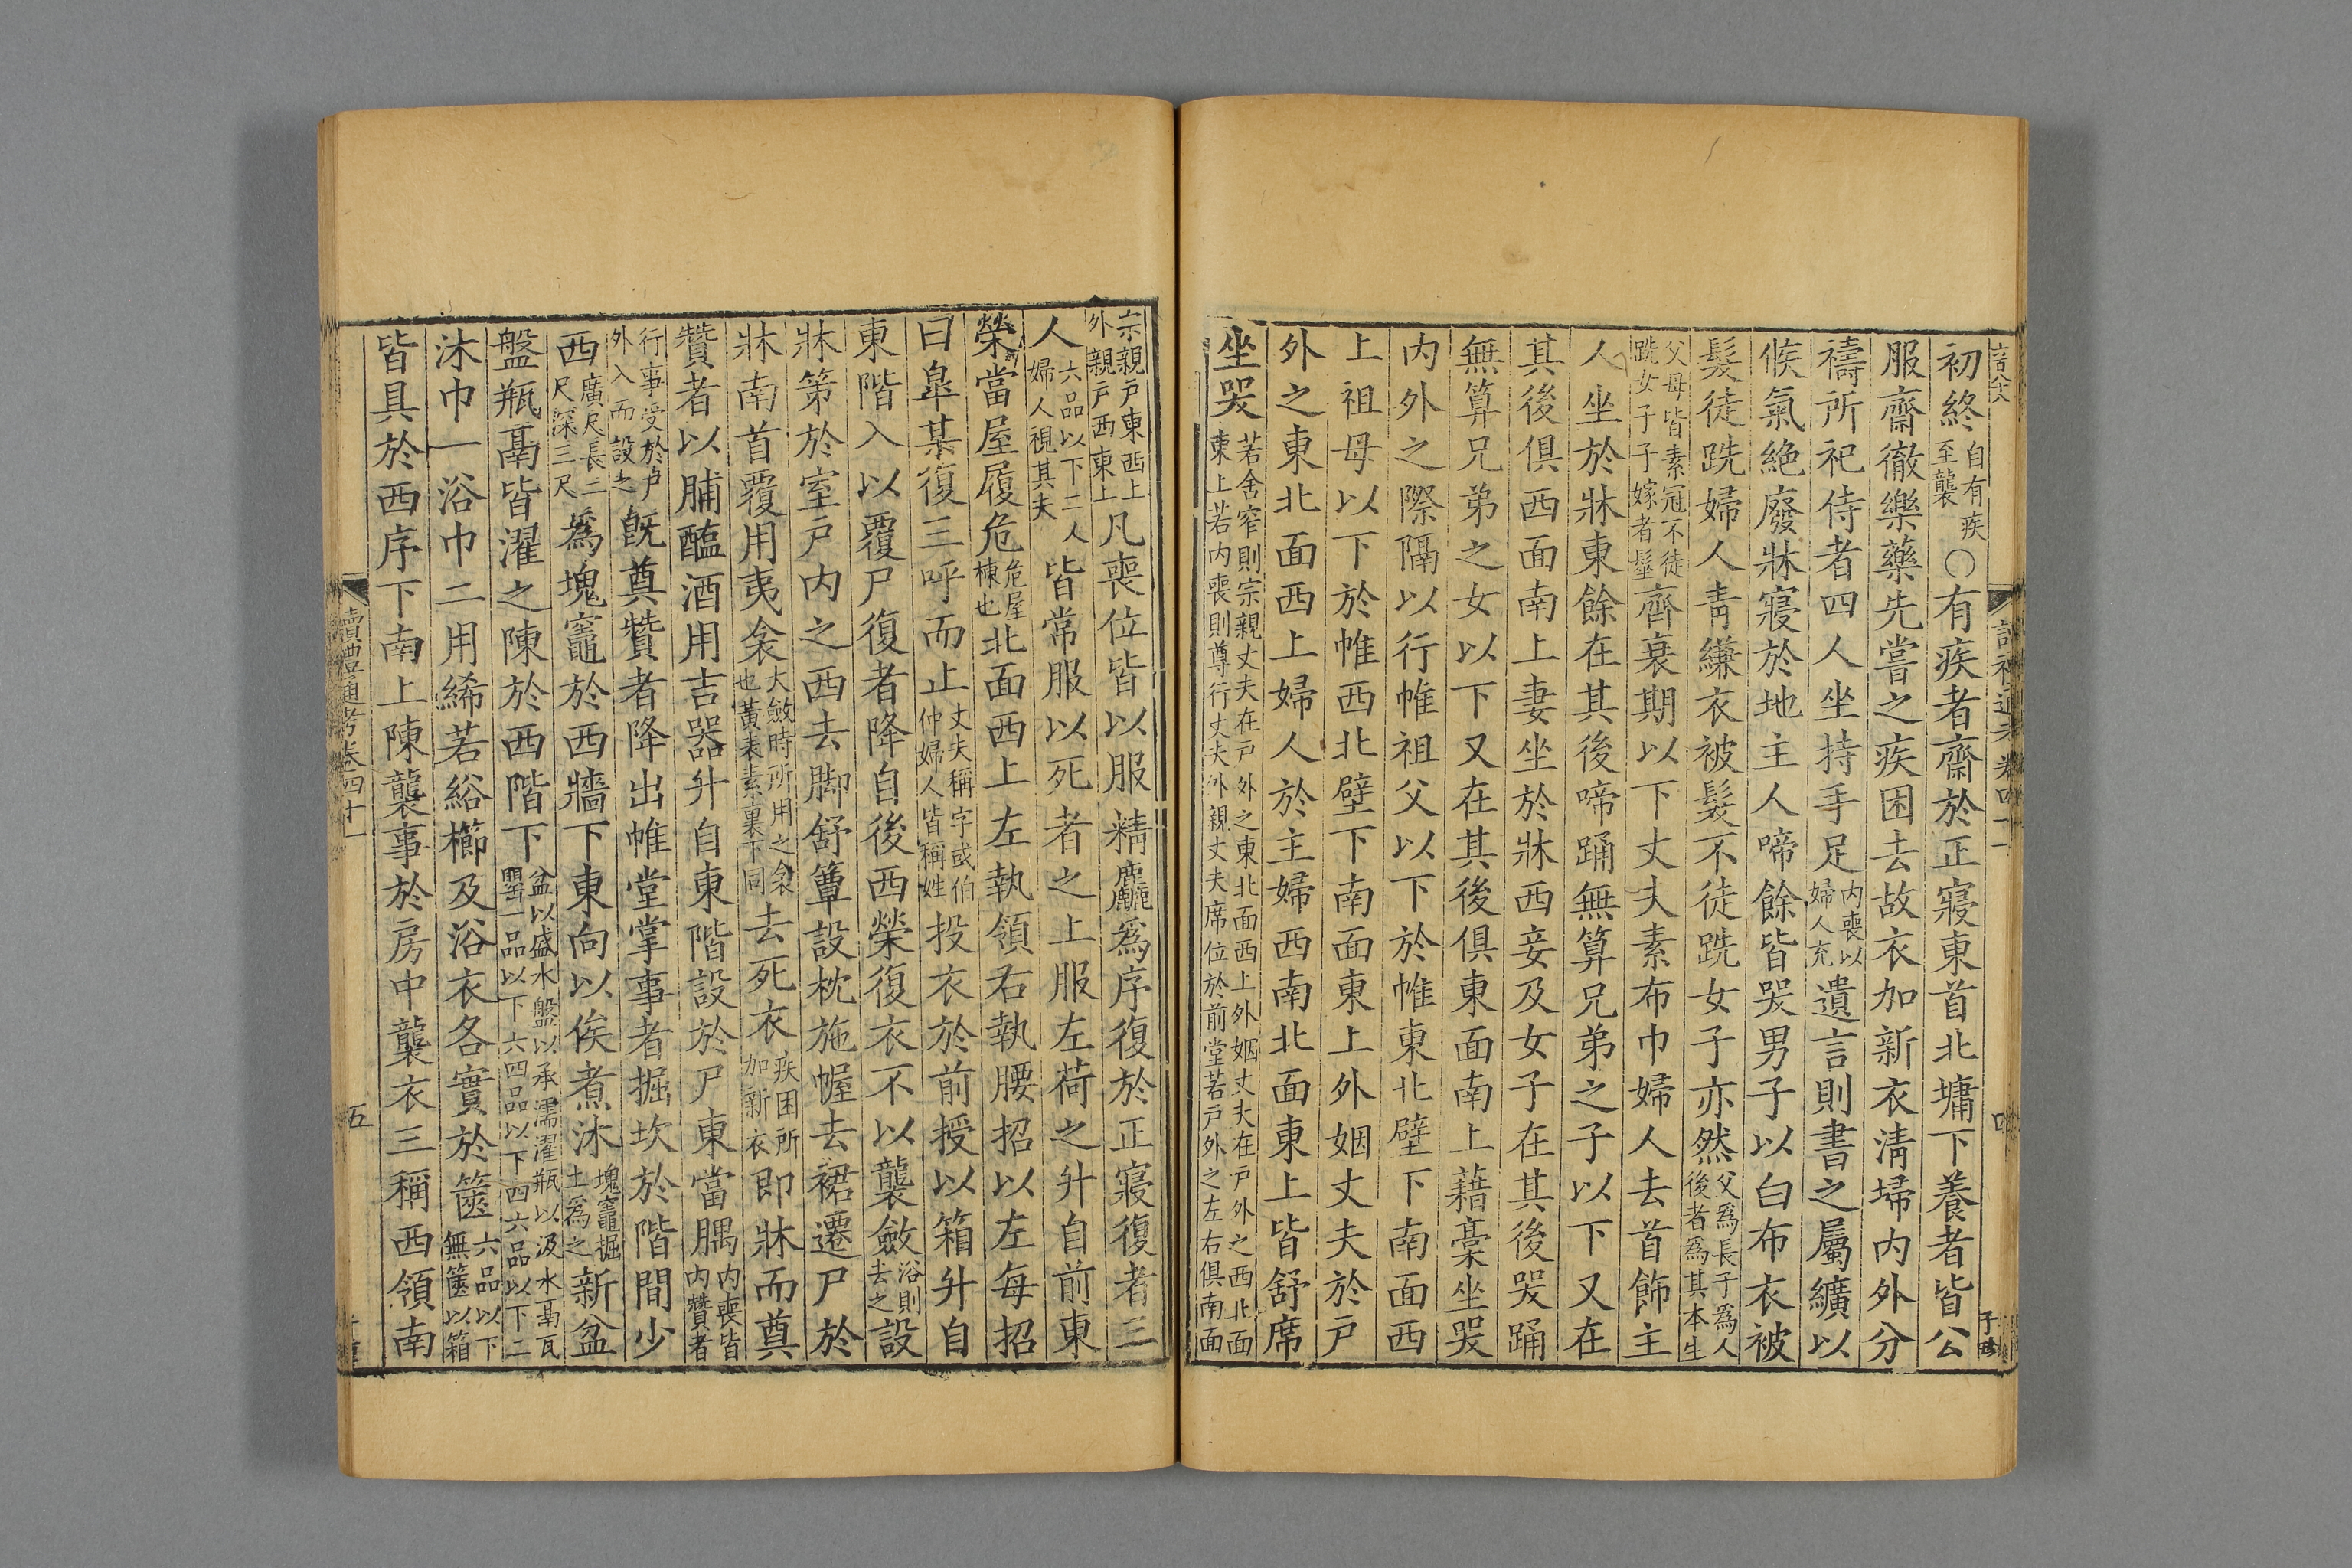 初終自有疾至襲○有疾者齋於正寢東首北墉下養者皆公
服齋徹樂藥先嘗之疾困去故衣加新衣淸埽内外分
禱所祀侍者四人坐持手足内喪以婦人充遺言則書之屬纊以
候氣絶廢牀寢於地主人啼餘皆哭男子以白布衣被
髮徒跣婦人靑縑衣被髮不徒跣女子亦然父爲長子爲人後者爲其本生
父母皆素冠不徒跣女子子嫁者髽齊衰期以下丈夫素布巾婦人去首飾主
人坐於牀東餘在其後啼踊無算兄弟之子以下又在
其後俱西面南上妻坐於牀西妾及女子在其後哭踊
無算兄弟之女以下又在其後俱東面南上藉藁坐哭
内外之際隔以行帷祖父以下於帷東北壁下南面西
上祖母以下於帷西北壁下南面東上外姻丈夫於戸
外之東北面西上婦人於主婦西南北面東上皆舒席
坐哭若舍窄則宗親丈夫在戸外之東北面西上外姻丈夫在戸外之西北面東上若内喪則尊行丈夫外親丈夫席位於前堂若戸外之左右俱南面
宗親戸東西上外親戸西東上凡喪位皆以服精麤爲序復於正寢復者三
人六品以下二人婦人視其夫皆常服以死者之上服左荷之升自前東
榮當屋履危危屋棟也北面西上左執領右執腰招以左每招
曰皐某復三呼而止丈夫稱字或伯仲婦人皆稱姓投衣於前授以箱升自
東階入以覆尸復者降自後西榮復衣不以襲斂浴則去之設
牀第於室戸内之西去脚舒簟設枕施幄去裙遷尸於
牀南首覆用夷衾大斂時所用之衾也黃表素裏下同去死衣疾困所加新衣即牀而奠
贊者以脯醢酒用吉器升自東階設於尸東當腢内喪皆内贊者
行事受於戸外入而設之旣奠贊者降出帷堂掌事者掘坎於階間少
西廣尺長二尺深三尺爲塊竈於西牆下東向以俟煮沐塊竈掘土爲之新盆
盤瓶鬲皆濯之陳於西階下盆以盛水盤以承濡濯瓶以汲水鬲瓦甖一品以下六四品以下四六品以下二
沐巾一浴巾二用絺若綌櫛及浴衣各實於篋六品以下無篋以箱
皆具於西序下南上陳襲事於房中襲衣三稱西領南
讀禮通考卷四十一
五